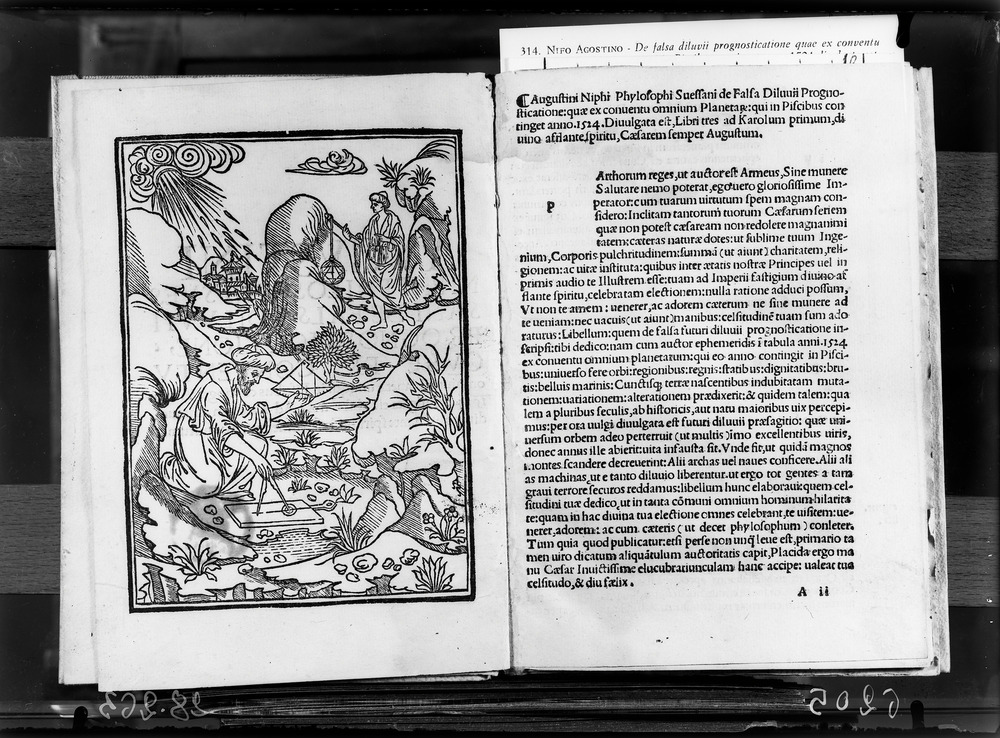 314. NIFO AGOSTINO - De falsa diluvii prognosticatione quae ex conventu
Augustini Niphi Phylosophi Suessani de Falsa Diluuii Progno-
sticatione: quæ ex conuentu omnium Planetaꝝ: qui in Piscibus con
tinget anno. 1524. Diuulgata est, Libri tres ad Karolum primum, di
uino afflante spiritu, Cæsarem semper Augustum.
P
Arthorum reges, ut auctor est Armeus, Sine munere
Salutare nemo poterat, ego uero gloriosissime Im-
perator: cum tuarum uirtutum spem magnam con-
sidero: Inclitam tantorum tuorum Cæsarum seriem
quæ non potest cæsaream non redolere magnanimi
tatem: cæteras naturæ dotes: ut sublime tuum Inge-
nium, Corporis pulchritudinem: summā (ut aiunt) charitatem, reli-
gionem: ac uitæ instituta: quibus inter ætatis nostræ Principes uel in
primis audio te Illustrem esse: tuam ad Imperii fastigium diuino af
flante spiritu, celebratam electionem: nulla ratione adduci possum,
Vt non te amem: uenerer, ac adorem cæterum ne sine munere ad
te ueniam: nec uacuis (ut aiunt) manibus: celsitudinē tuam sum ado
raturus: Libellum: quem de falsa futuri diluuii prognosticatione in-
scripsi: tibi dedico: nam cum auctor ephemeridis ī tabula anni. 1524
ex conuentu omnium planetarum: qui eo anno contingit in Pisci-
bus: uniuerso fere orbi: regionibus: regnis: statibus: dignitatibus: bru-
tis: belluis marinis: Cunctisq; terræ nascentibus indubitatam muta-
tionem: uariationem: alterationem prædixerit: & quidem talem: qua
lem a pluribus seculis, ab historicis, aut natu maioribus uix percepi-
mus: per ora uulgi diuulgata est futuri diluuii præsagitio: quæ uni-
uersum orbem adeo perterruit (ut multis) imo excellentibus uiris,
donec annus ille abierit: uita infausta sit. Vnde fit, ut quidā magnos
montes scandere decreuerint: Alii archas uel naues conficere. Alii ali
as machinas, ut e tanto diluuio liberentur. ut ergo tot gentes a tam
graui terrore securos reddamus: libellum hunc elaborauit: quem cel-
situdini tuæ dedico, ut in tanta cōmuni omnium hominum hilarita
te: quam in hac diuina tua electione omnes celebrant, te uisitem: ue-
nerer, adorem: ac cum cæteris (ut decet phylosophum) conleter.
Tum quia quod publicatur: etsi per se non unq̄ leue est, primario ta
men uiro dicatum aliquātulum auctoritatis capit, Placida ergo ma
nu Cæsar Inuictissime elucubratiunculam hanc accipe: ualeat tua
celsitudo, & diu fælix.
A ii
28.263
6205